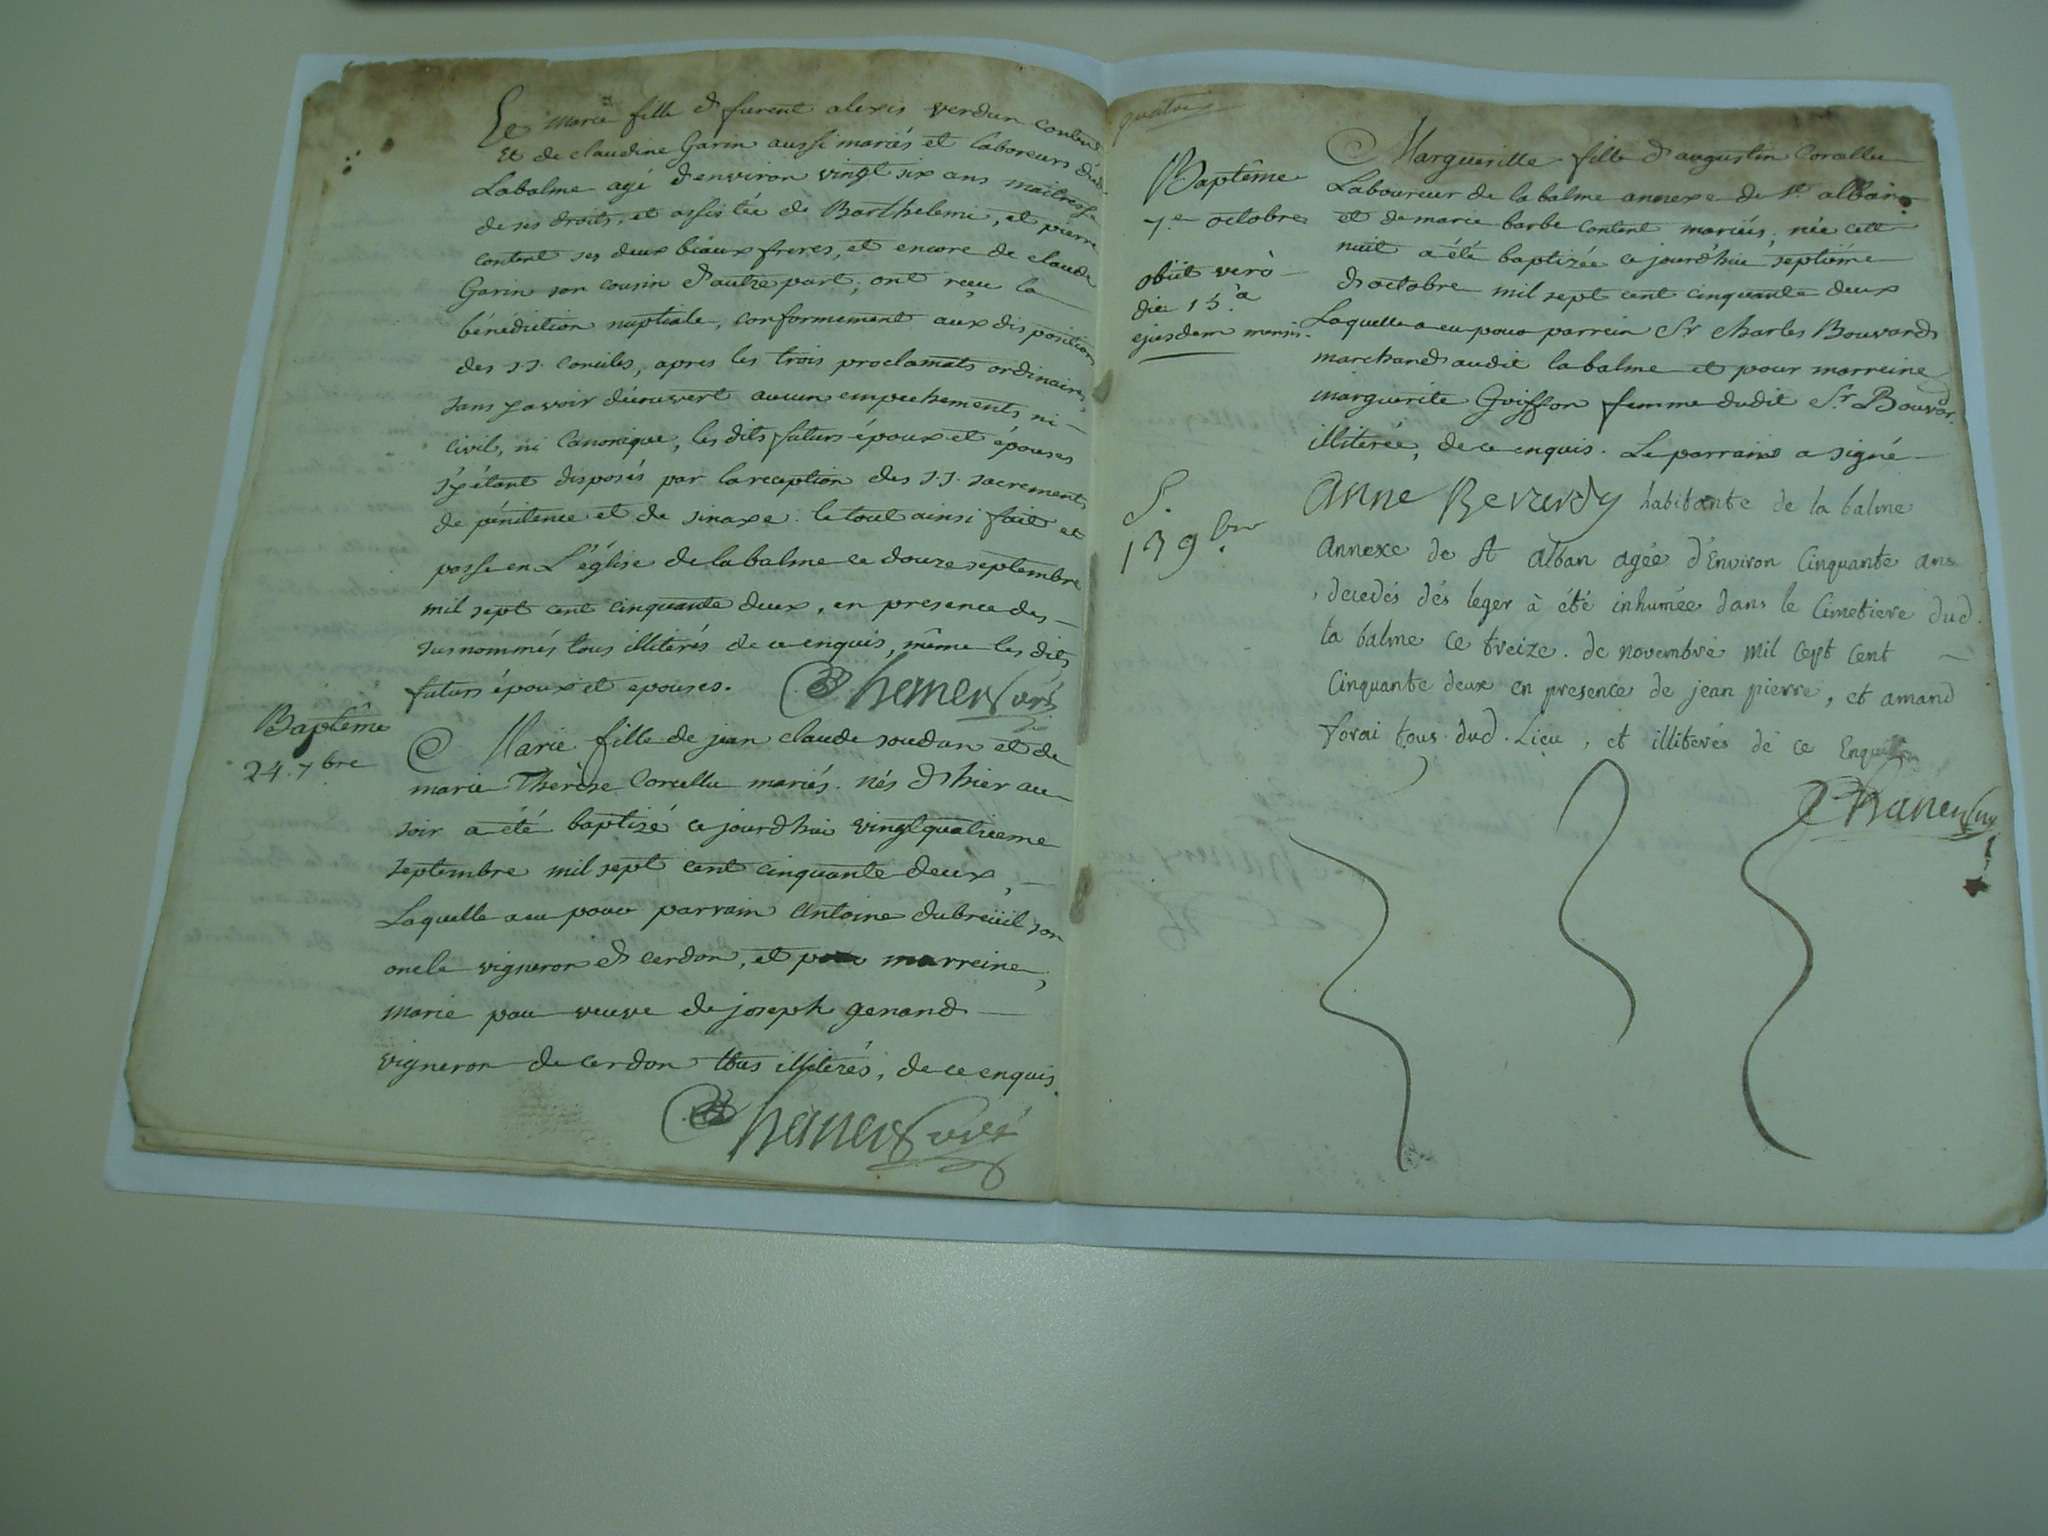 Et marie fille de furent alexis verdan content
Et de claudine Garin aussi mariés et laboreurs dud.
Labalme agé d'environ vingt six ans maitresse
de ses droits, et assistée de Barthelemi, et pierre
content ses deux béaux freres, et encore de claude
Garin son cousin d'autre part, ont reçu la
bénédiction nuptiale, conformement aux dispositions
des SS. conciles, apres les trois proclamats ordinaires,
sans y avoir découvert aucun empechements ni
civil, ni canonique, les dits futurs époux et épouses
s'y étant disposés par la reception des SS. sacrements
de pénitence et de sinaxe. le tout ainsi fait et
passé en L'église de labalme ce douze septembre
mil sept cent cinquante deux, en presence des
susnommés tous illiterés de ce enquis, même les dits
futurs époux et epouses.
Baptême
24. 7bre
Marie fille de jean claude soudan et de
marie Thérèse Corcellu mariés. nés d'hier au
soir a été baptizé ce jourd'hui vingtquatrieme
septembre mil sept cent cinquante deux,
Laquelle a eu pour parrain Antoine dubreüil son
oncle vigneron de cerdon, et pour marreine,
marie pau veuve de joseph genand
vigneron de cerdon tous illiterés, de ce enquis.
quatre
Baptême
7e octobre
obiit verò
die 15a
ejusdem mensis.
Marguerite fille d'augustin Corcellu
Laboureur de la balme annexe de St. alban
et de marie barbe content mariés, née cette
nuit a été baptizée ce jourd'hui septiéme
d'octobre mil sept cent cinquante deux
Laquelle a eu pour parrein Sr charles Bouvard
marchand audit labalme et pour marreine
marguerite Goiffon femme dudit Sr. Bouvard
illiterée, de ce enquis. Le parrain a signé
S.
13 9bre
Anne Revurdy habitante de la balme
Annexe de St Alban agée d'Environ Cinquante ans
decedés dés leger à été inhumée dans le Cimetiere dud.
la balme ce treize. de novembre mil cept cent
Cinquante deux en presence de jean pierre, et amand
forai tous. dud. Lieu, et illiterés de ce Enquis